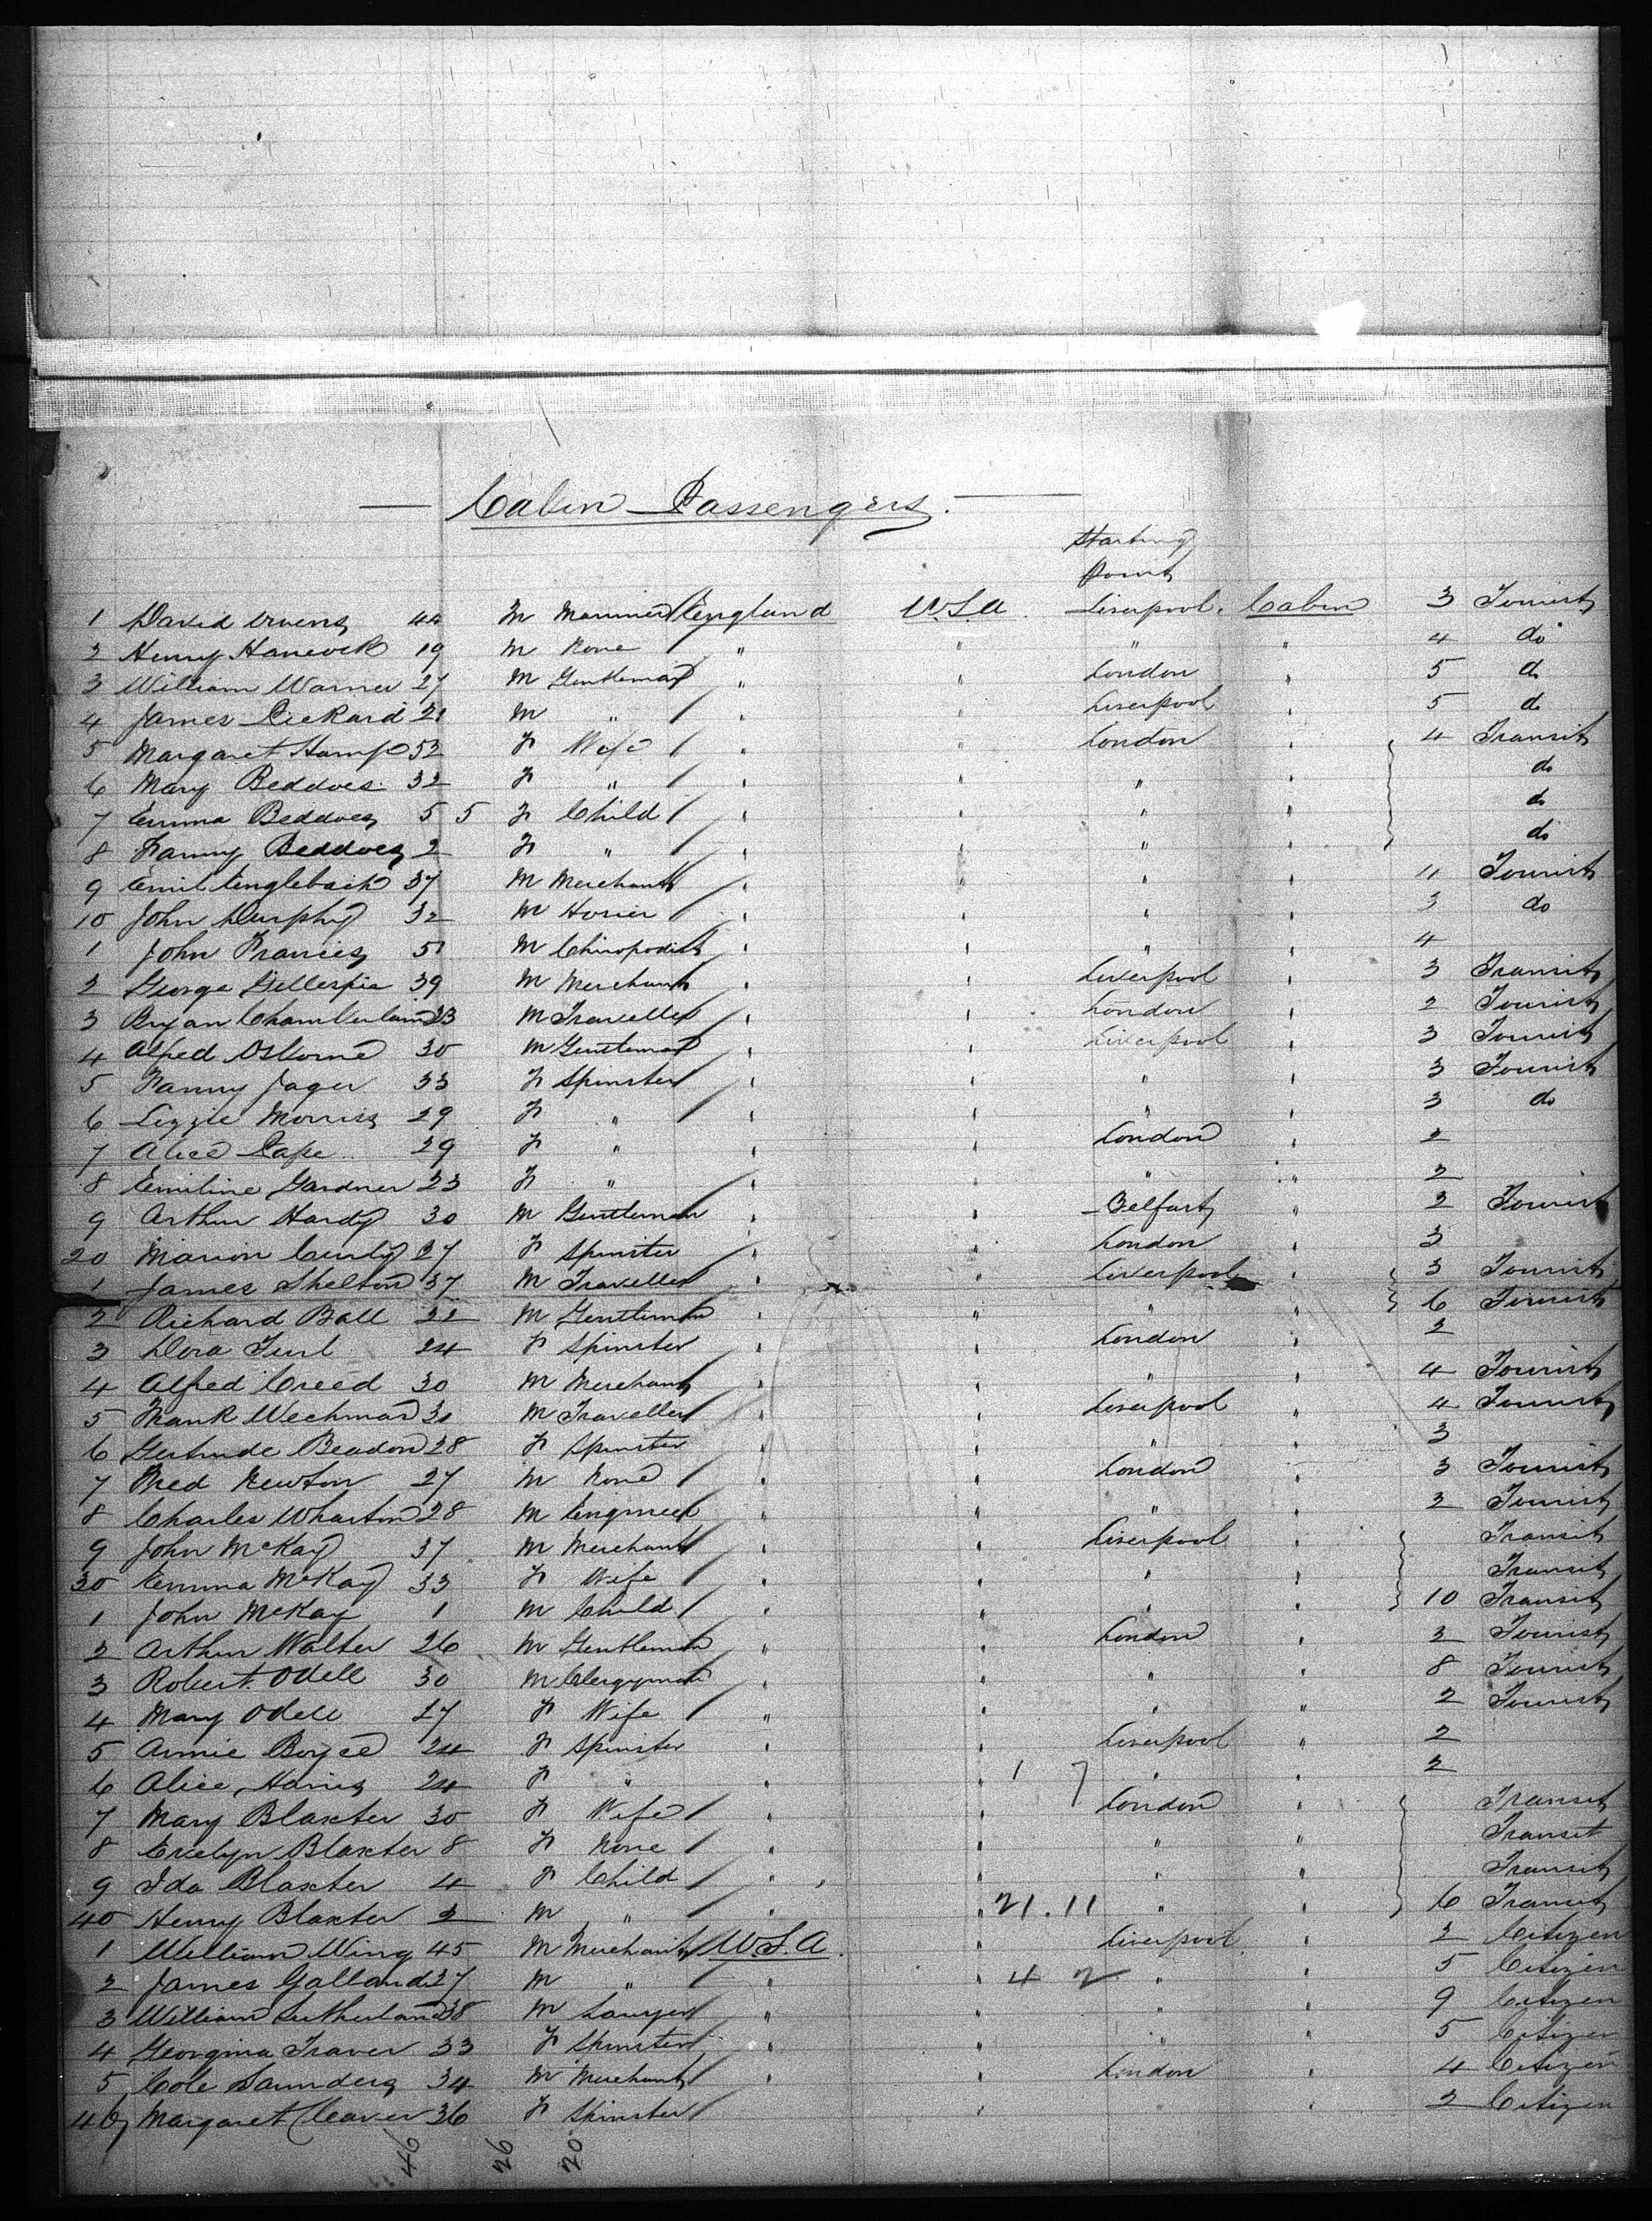 Cabin Passengers.
Starting
Point
1 David Owens 44 M Mariner England U.S.A. Liverpool. Cabin 3 Tourist
2 Henry Hancock 19 M None " " " " 4 do
3 William Warner 27 M Gentleman " " London " 5 do
4 James Rickard 21 M " " " Liverpool " 5 do
5 Margaret Hamp 53 F Wife " " London " 4 Transit
6 Mary Beddoes 32 F " " " " " do
7 Emma Beddoes 5 5 F Child " " " " do
8 Fanny Beddoes 2 F " " " " " do
9 Emil Engleback 37 M Merchant " " " " 4 Tourist
10 John Murphy 32 M Hosier " " " " 3 do
1 John Francis 51 M Chiropodist " " " " 4
2 George Gillespie 39 M Merchant " " Liverpool " 3 Transit
3 Bryan Chamberlain 23 M Traveller " " London " 2 Tourist
4 Alfred Osborne 30 M Gentleman " " Liverpool " 3 Tourist
5 Fanny Jager 33 F Spinster " " " " 3 Tourist
6 Lizzie Morriss 29 F " " " " " 3 do
7 Alice Pape 29 F " " " London " 2
8 Emiline Gardner 23 F " " " " " 2
9 Arthur Hardy 30 M Gentleman " " Belfast " 2 Tourist
20 Marion Curly 27 F Spinster " " London " 3
1 James Shelton 37 M Traveller " " Liverpool " 3 Tourist
2 Richard Ball 22 M Gentleman " " " " 6 Tourist
3 Dora 24 F Spinster " " London " 2
4 Alfred Creed 30 M Merchant " " " " 4 Tourist
5 Frank Wechman 31 M Traveller " " Liverpool " 4 Tourist
6 Gertrude Beadon 28 F Spinster " " " " 3
7 Fred Newton 27 M None " " London " 3 Tourist
8 Charles Wharton 28 M Engineer " " " " 2 Tourist
9 John McKay 37 M Merchant " " Liverpool " Transit
30 Emma McKay 33 F Wife " " " " Transit
1 John McKay 1 M Child " " " " 10 Transit
2 Arthur Walter 26 M Gentleman " " London " 2 Tourist
3 Robert Odell 30 M Clergyman " " " " 8 Tourist
4 Mary Odell 27 F Wife " " " " 2 Tourist
5 Annie Boyce 24 F Spinster " " Liverpool " 2
6 Alice Harris 24 F " " " 1 7 " " 2
7 Mary Blaxter 30 F Wife " " London " Transit
8 Evelyn Blaxter 8 F None " " " " Transit
9 Ida Blaxter 4 F Child " " " " Transit
40 Henry Blaxter 2 M " " " 21.11 " " 6 Transit
1 William Wing 45 M Merchant U.S.A. " Liverpool " 2 Citizen
2 James Galland 27 M " " " 4 2 " " 5 Citizen
3 William Sutherland 38 M Lawyer " " " " 9 Citizen
4 Georgina Traver 33 F Spinster " " " " 5 Citizen
5 Cole Saunders 34 M Merchant " " London " 4 Citizen
46 Margaret Cleaver 36 F Spinster " " 2 Citizen
46 26 20